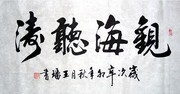 觀海聽濤
歲次辛卯年秋月王書